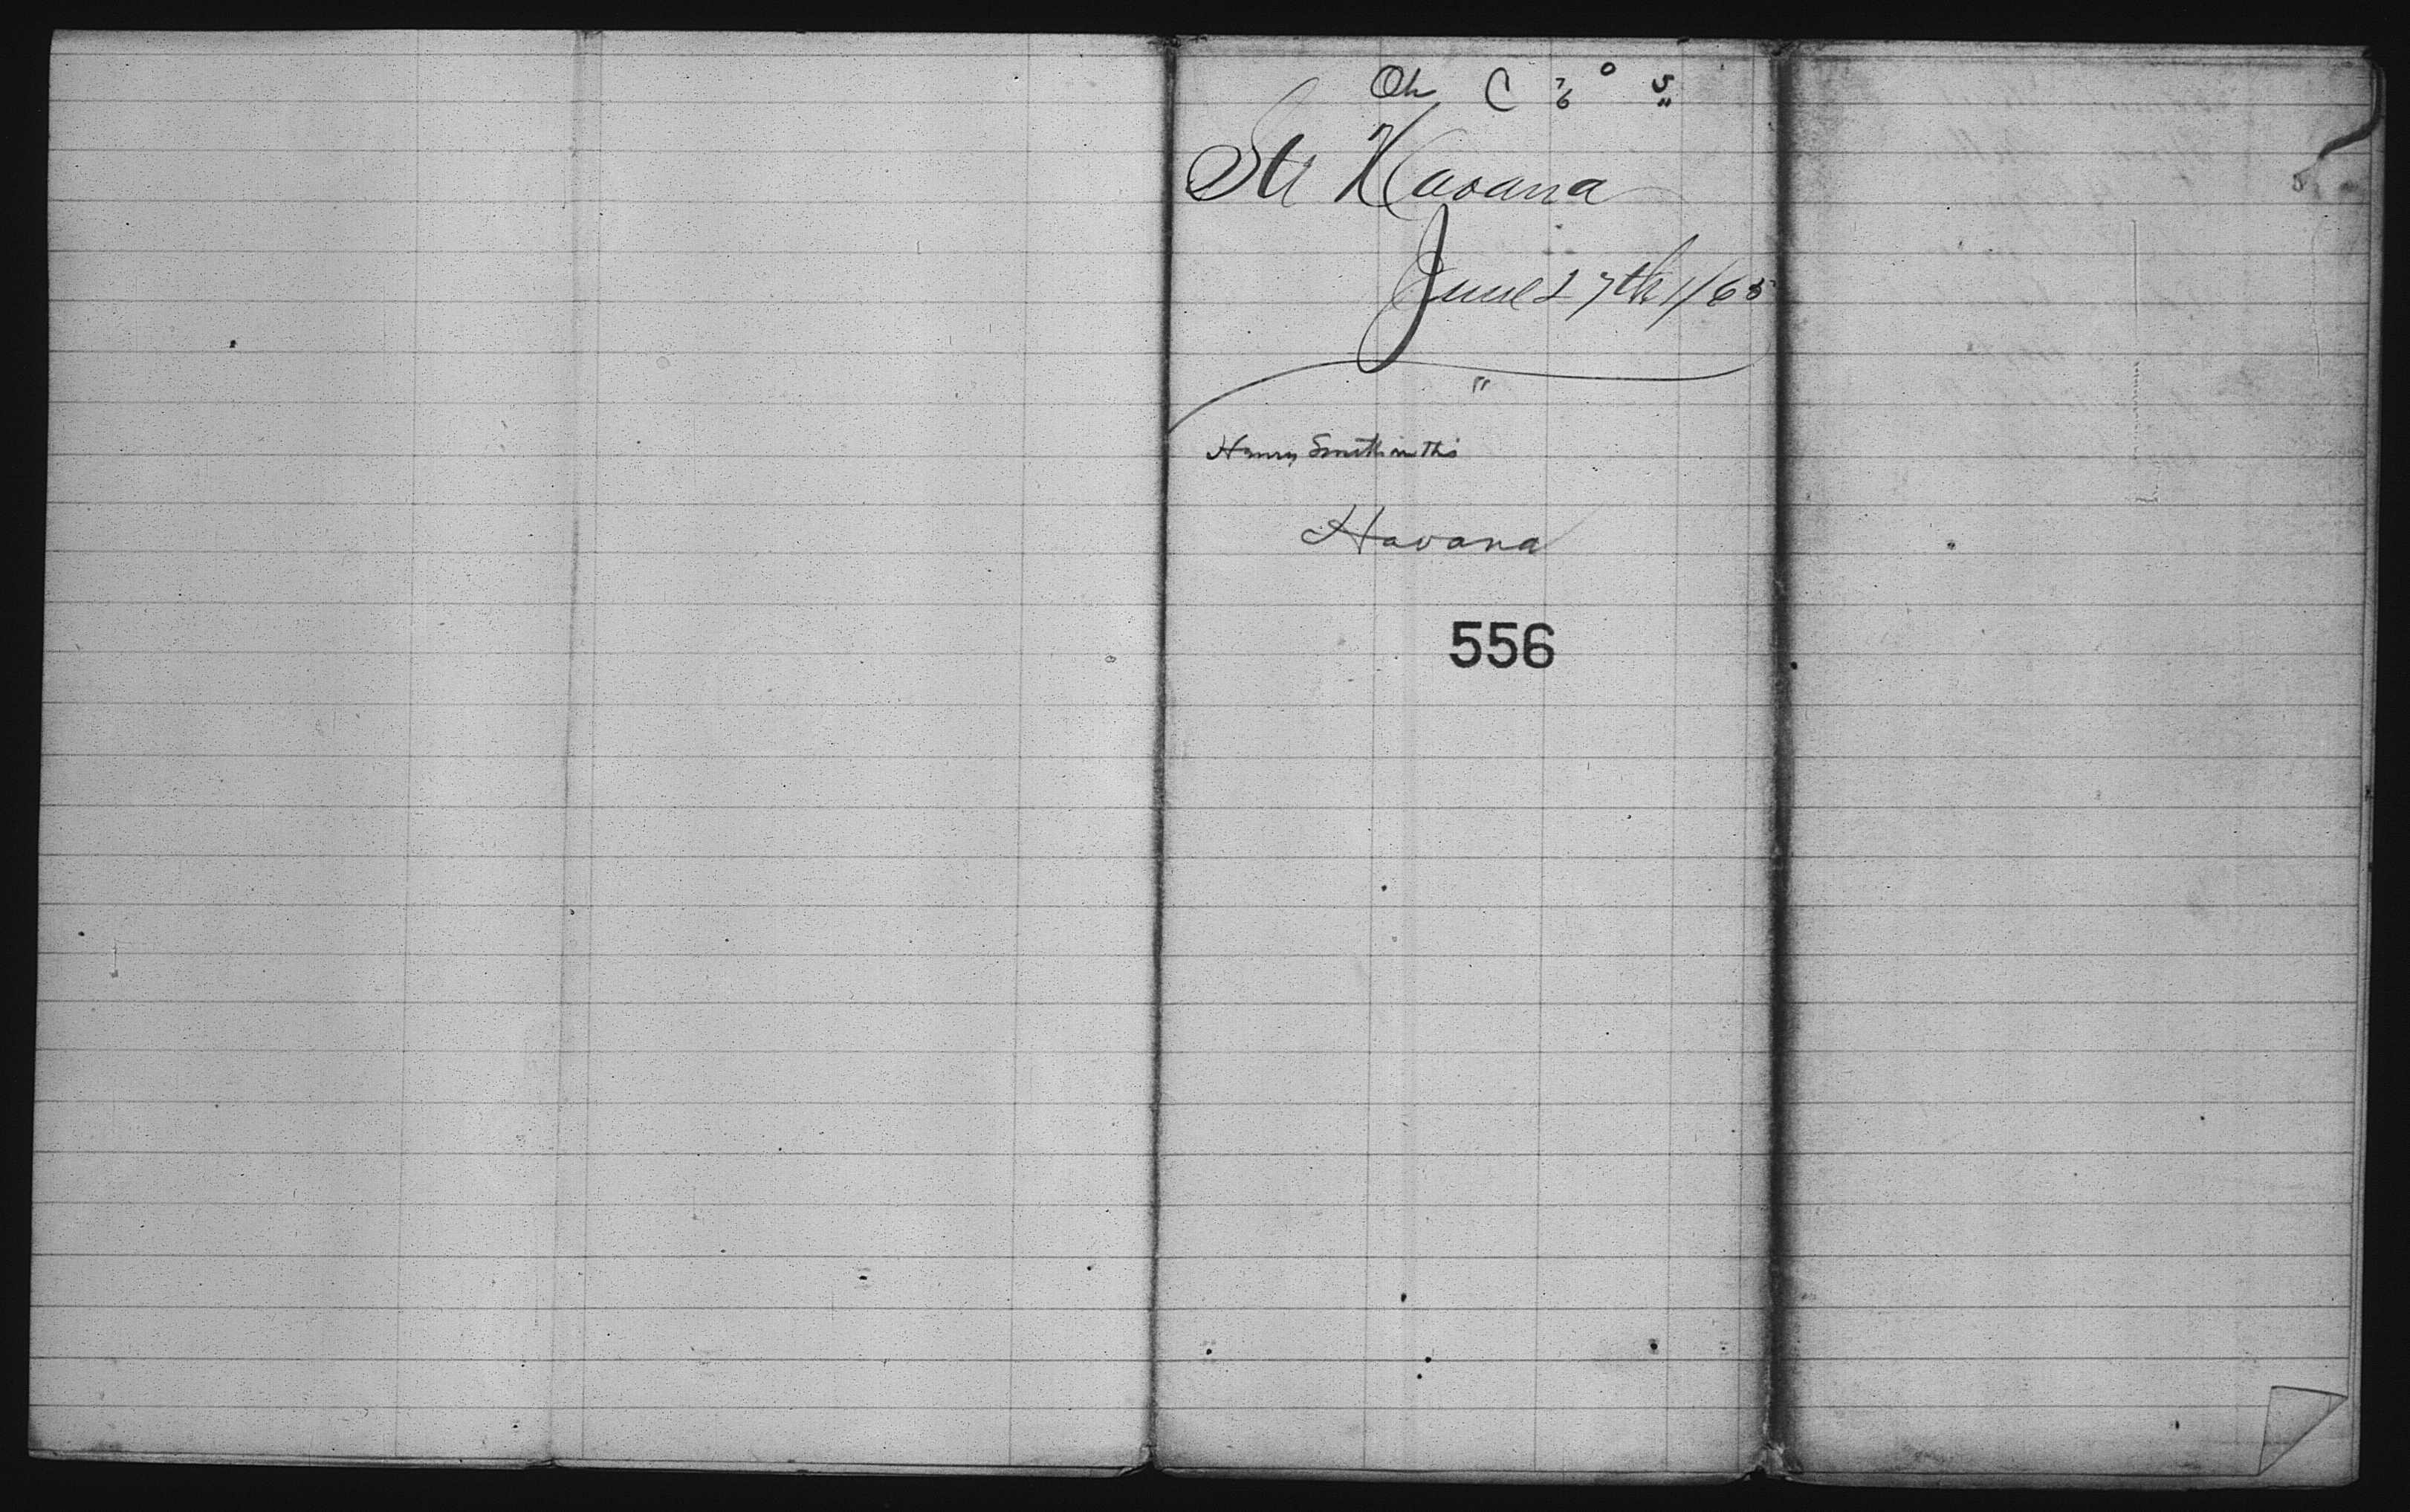 Ok C 7/6 0 5
Str Havana
June 27th 1/65
"
Henry Smith in this
Havana
556